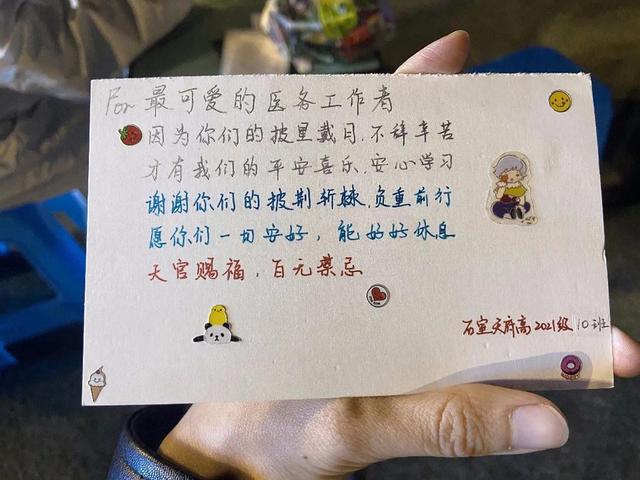 For 最可爱的医务工作者
因为你们的披星戴月,不辞辛苦
才有我们的平安喜乐,安心学习
谢谢你们的披荆斩棘,负重前行
愿你们一切安好，能好好休息
天官赐福，百无禁忌
石室天府高2021级10班